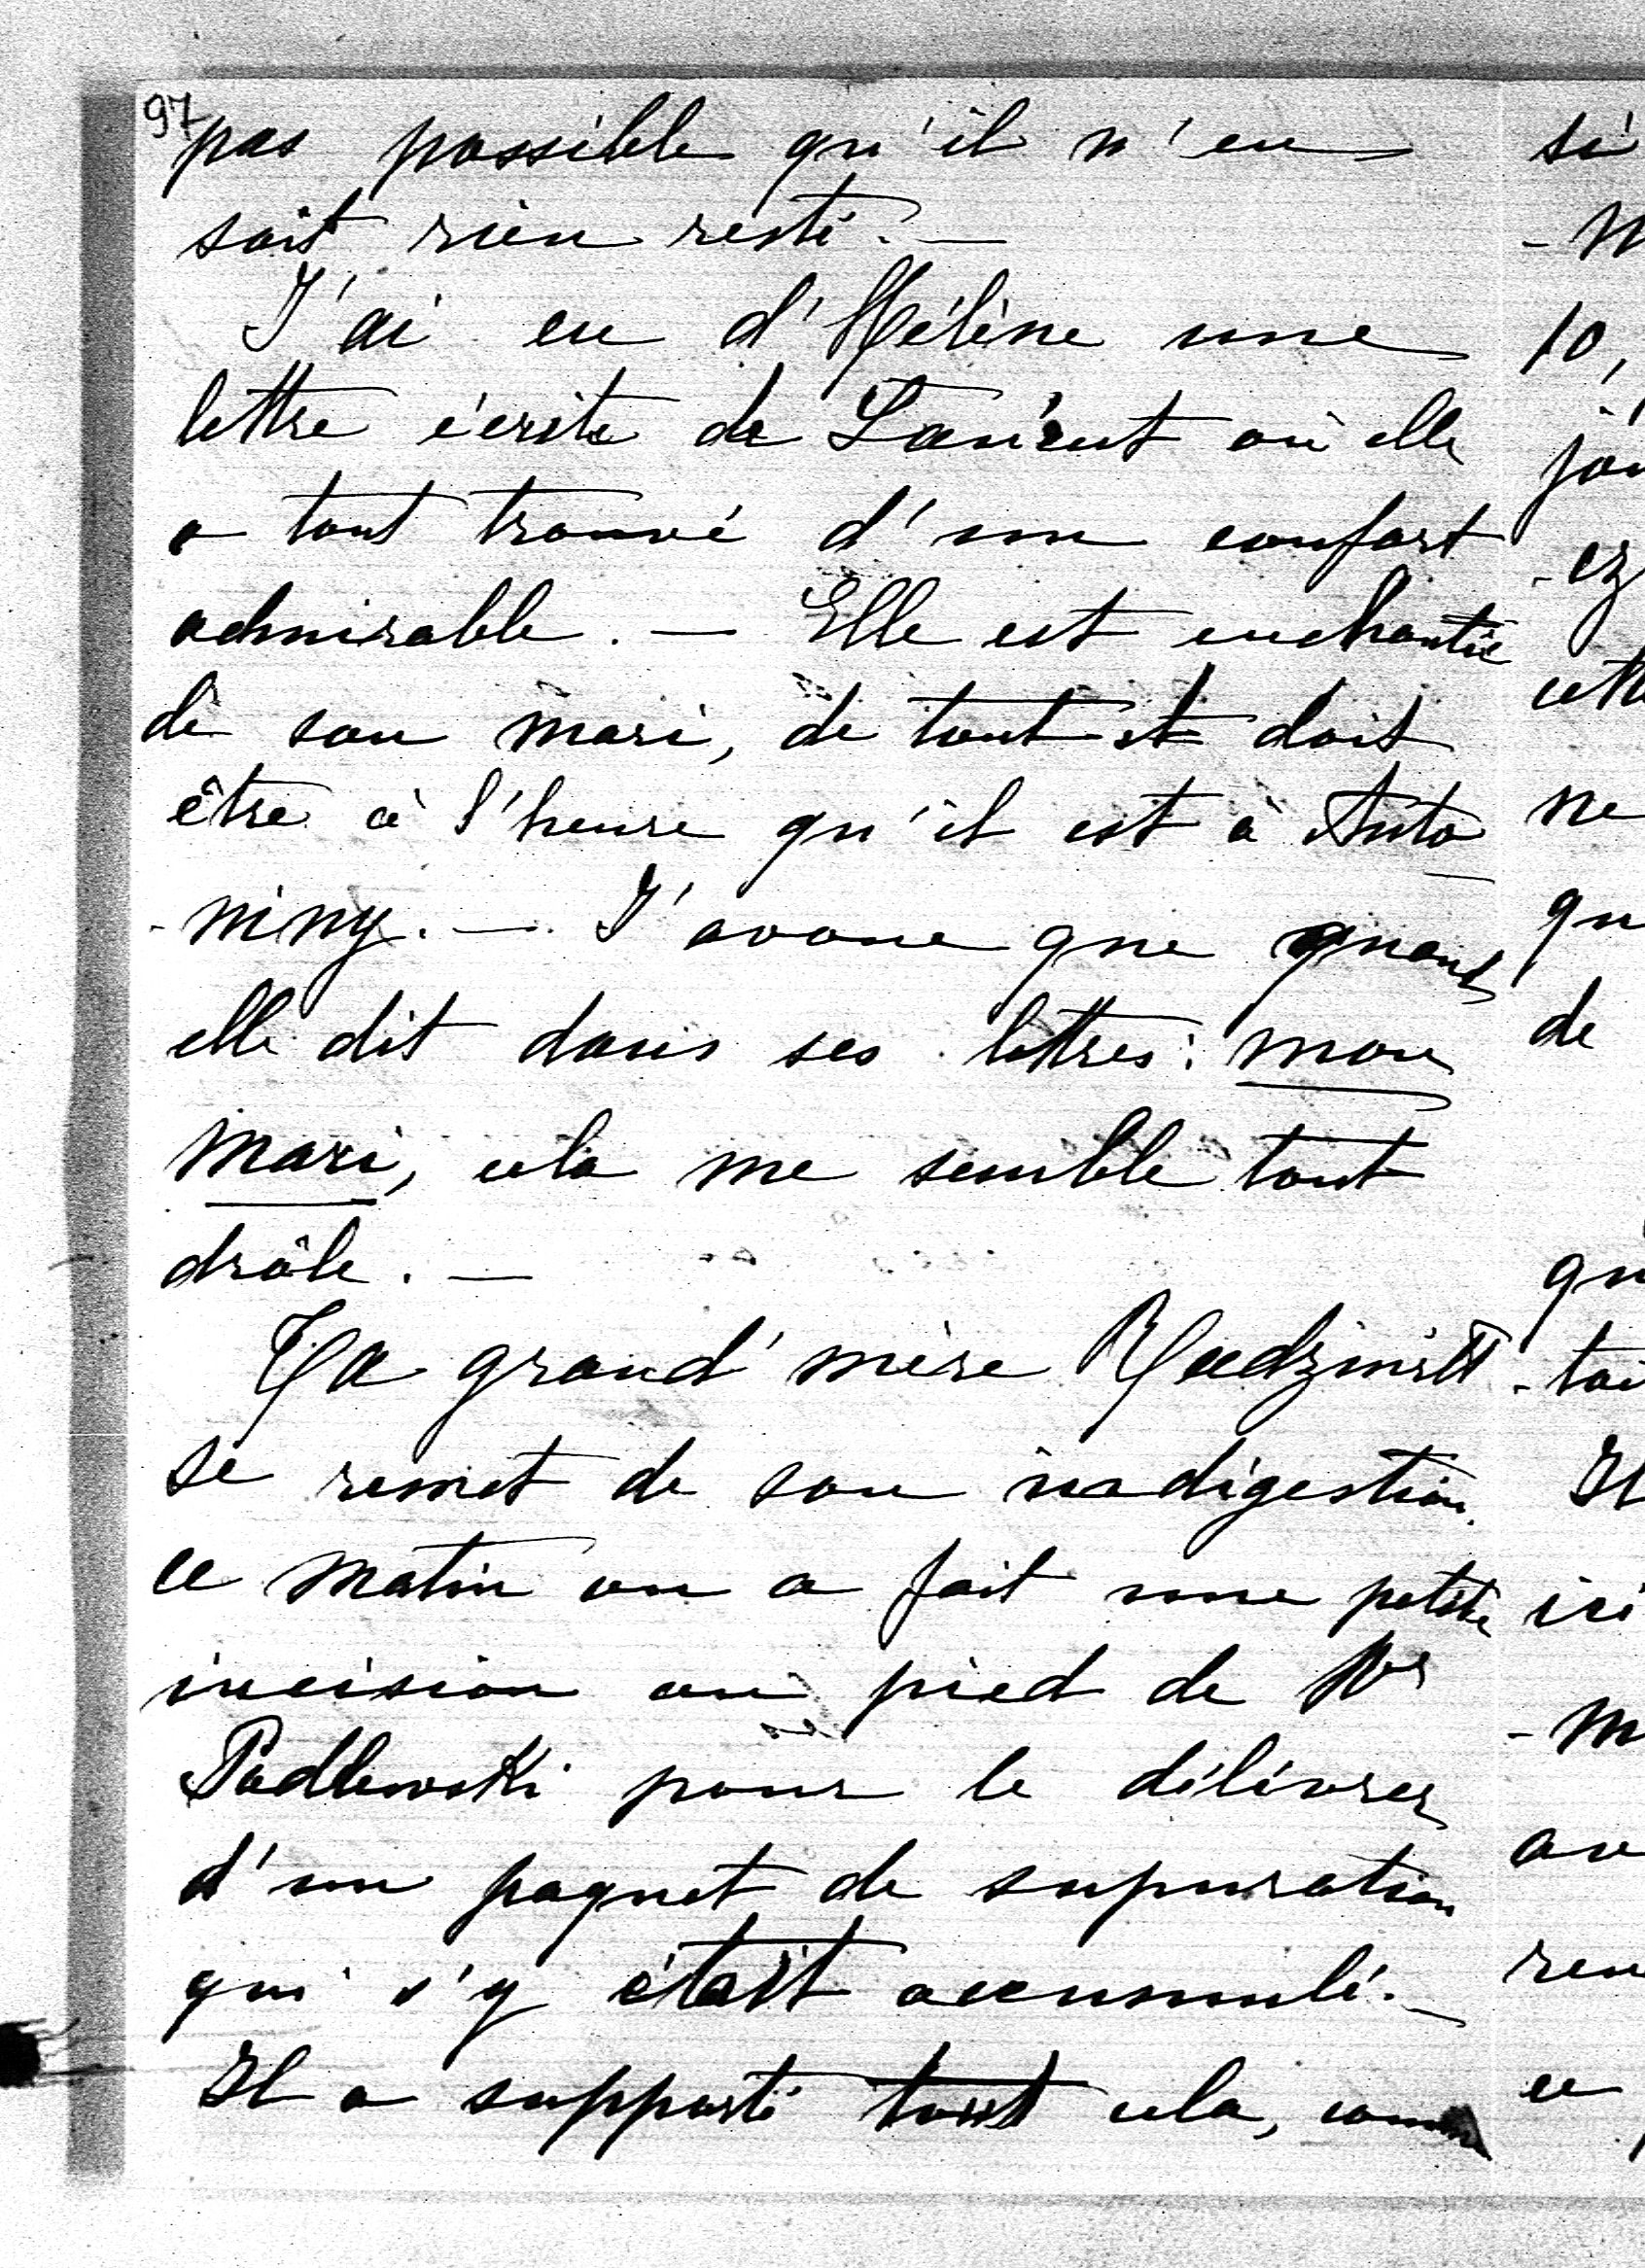 97
pas possible qu'il n'en
soit rien resté. —
J'ai eu d'Hélène une
lettre écrite de Łańcut où elle
a tout trouvé d'un confort
admirable. — Elle est enchantée
de son mari, de tout et doit
être à l'heure qu'il est à Anto
-niny. — J'avoue que quand
elle dit dans ses lettres: mon
mari, cela me semble tout
drôle. —
Ta grand'mère Radziwiłł
se remet de son indigestion.
ce matin on a fait une petite
incision au pied de Mr
Padlewski pour le délivrer
d'un paquet de supuration
qui s'y était accumulé. —
Il a supporté tout cela, comme
si
-m
10,
jou
-ez
cette
ne
qu
de
qu
-toi
Il
ici
-m
av
ren
ce